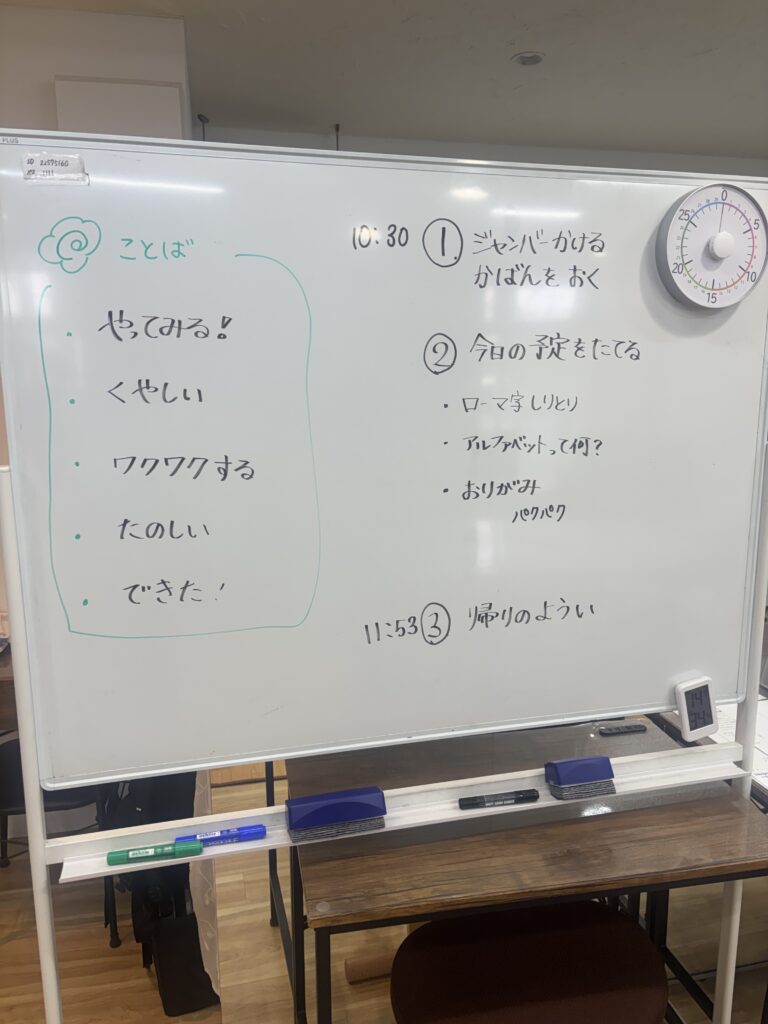 PLUS
ことば
やってみる!
くやしい
ワクワクする
たのしい
できた!
10:30 ① ジャンバーかける
かばんを おく
② 今日の予定をたてる
・ローマ字しりとり
・アルファベットって何?
・おりがみ
パクパク
11:53 ③ 帰りのようい
0
5
10
15
20
25